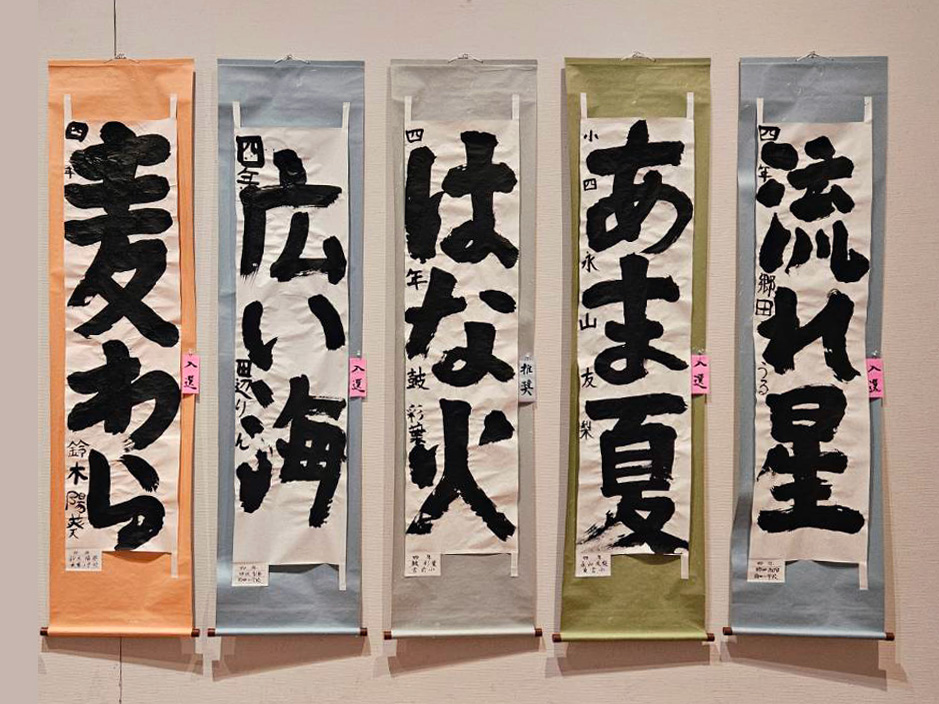 麦わら
四年
鈴木陽葵
入選
広い海
四年
田辺りん
入選
はな火
四年
鼓
彩葉
推奨
あま夏
小四
永山友梨
入選
流れ星
四年
郷田うる
入選